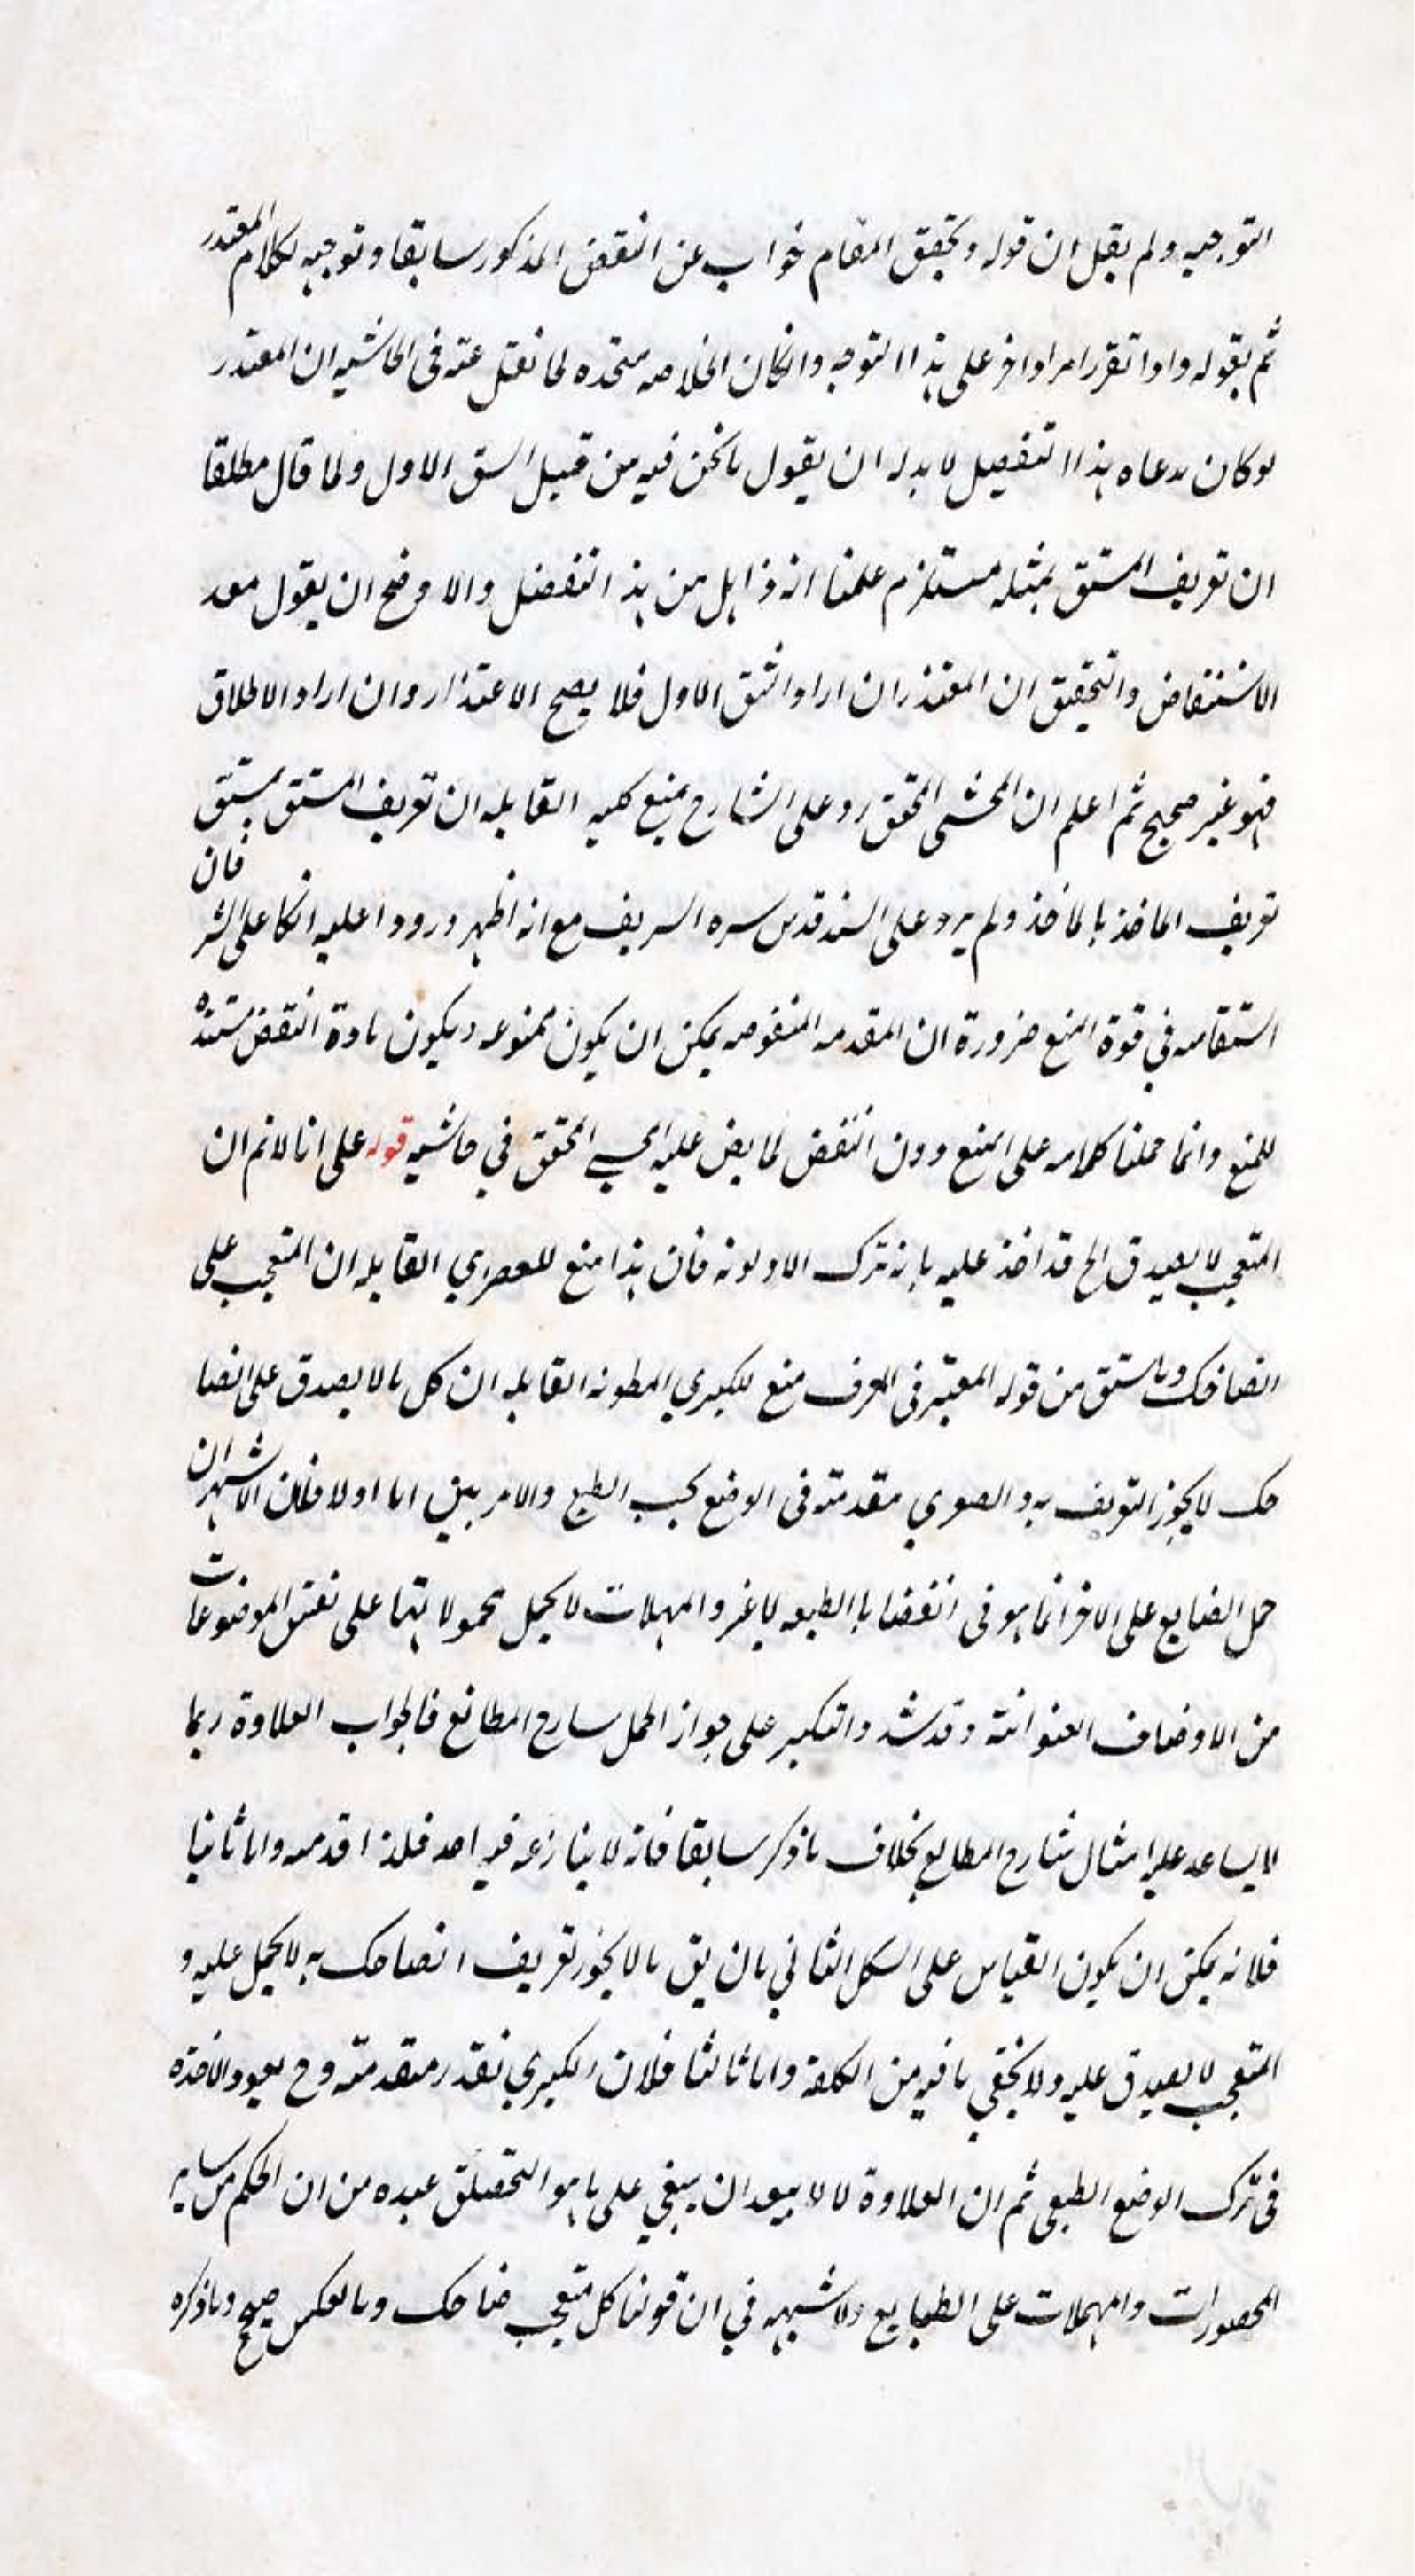 التوجيه ولم يقل ان قوله وتحقيق المقام جواب عن النقض المذكور سابقا وتوجيه لكلام المعتذر
ثم بقوله واذا تقرر امرا واخر على هذا التوجيه وانكان الخلاصه متحده لما نقل عنه فى الحاشيه ان المعتذر
لوكان مدعاه هذا التفصيل لا بد له ان يقول ما نحن فيه من قبيل الشق الاول ولما قال مطلقا
ان تعريف المشتق بمثله مستلزم علمنا انه ذاهل من هذا التفصيل والاوضح ان يقول بعد
الاستنقاض والتحقيق ان المعتذر ان اراد الشق الاول فلا يصح الاعتذار وان اراد الاطلاق
فهو غير صحيح ثم اعلم ان المحشى المحقق رد على الشارح بمنع كليه القايله ان تعريف المشتق بمشتق
تعريف الماخذ بالماخذ ولم يرد على السند قدس سره الشريف مع انه اظهر ورودا عليه اتكا على الشر فان
استقامه في قوة المنع ضرورة ان المقدمه المنقوضه يمكن ان يكون ممنوعه ويكون مادة النقض سنده
للمنع وانما حملنا كلامه على المنع دون النقض لما يض عليه المحقق في حاشيه قوله على انا لانم ان
المتعجب لا يصدق الخ قد اخذ عليه بانه ترك الاولونه فان هذا منع للصغري القايله ان المتعجب على
الضاحك وماسبق من قوله المعتبر فى المعرف منع للكبري المطونه القايله ان كل مالا يصدق على الضا
حك لايجوز التعريف به والصغري مقدمته فى الوضع بحسب الطبع والامر بين اما اولا فلان الاشهر ان
حمل الضايع على الاخر انما هو فى القضايا الطبعيه لاغير والمهملات لايحمل محمولاتها على نفس الموضوعات
من الاوصاف العنوانية وقد شدد التنكير على جواز الحمل شارح المطالع فالجواب العلاوة ربما
لايساعد عليه امثال شارح المطالع بخلاف ما ذكر سابقا فانه لا ينازعه فيه احد فلذا قدمه واما ثانيا
فلانه يمكن ان يكون القياس على الشكل الثاني بان يق مالا يجوز تعريف الضاحك به لايحمل عليه و
المتعجب لا يصدق عليه ولا يخفي ما فيه من الكلفة واما ثالثا فلان الكبري نقدر متقدمته وح يعود الاخذه
فى ترك الوضع الطبعى ثم ان العلاوة لا يبعد ان يبغي على ما هو التحقيق عنده من ان الحكم من ساير
المحصورات والمهملات على الطبايع ولاشبهه في ان قولنا كل متعجب ضاحك وبالعكس صحيح وماذكره